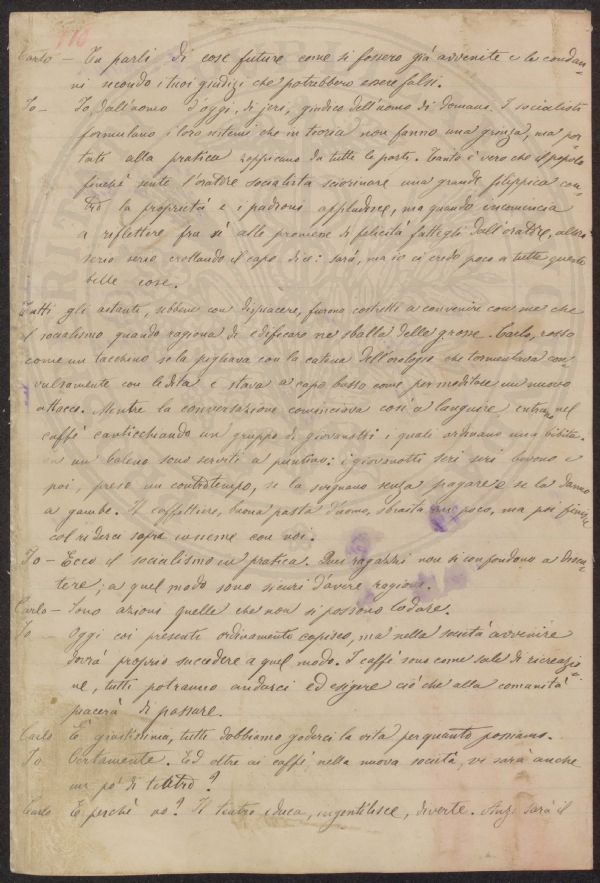 113
Carlo – Tu parli di cose future come si fossero già avvenite e le condan-
ni secondo i tuoi giudizi che potrebbero essere falsi.
Io – Io, dall'uomo d'oggi, di jeri, giudico dell'uomo di domani. I socialisti
formulano i loro sistemi che in teoria non fanno una grinza, ma por-
tati alla pratica zoppicano da tutte le parti. Tanto è vero che il popolo
finché sente l'oratore socialista sciorinare una grande filippica con-
tro la proprietà e i padroni appludisce, ma quando incomincia
a riflettere fra sé alle promesse di felicità fattegli dall'oratore, allora
serio serio crollando il capo dice: sarà, ma io ci credo poco a tutte queste
belle cose.
Tutti gli astanti, sebbene con dispiacere, furono costretti a convenire con me che
il socialismo quando ragiona di edificare ne sballa delle grosse. Carlo, rosso
come un tacchino se la pigliava con la catena dell'orologio che tormentava con-
vulsamente con le dita e stava a capo basso come per meditare un nuovo
attacco. Mentre la conversazione cominciava così a languire, entrano nel
caffè canticchiando un gruppo di giovanotti i quali ordinano una bibita.
in un baleno sono serviti a puntino: i giovanotti seri seri bevono e
poi, preso un controtempo, se la svignano senza pagare e se la danno
a gambe. Il caffettiere, buona pasta d'uomo, sbraita un poco, ma poi finisce
col riderci sopra insieme con noi.
Io – Ecco il socialismo in pratica. Quei ragazzi non si confondono a discu-
tere; a quel modo sono sicuri d'avere ragione.
Carlo – Sono azioni quelle che non si possono lodare.
Io Oggi coi presenti ordinamenti capisco, ma nella società avvenire
dovrà proprio succedere a quel modo. I caffè sono come sale di ricreazio-
ne, tutti potranno andarci ed esigere ciò che alla comunità
piacerà di passare.
Carlo È giustissimo, tutti dobbiamo goderci la vita per quanto possiamo.
Io Certamente. Ed oltre ai caffè, nella nuova società, vi sarà anche
un pò di teatro?
Carlo E perché no? Il teatro educa, ingentilisce, diverte. Anzi sarà il